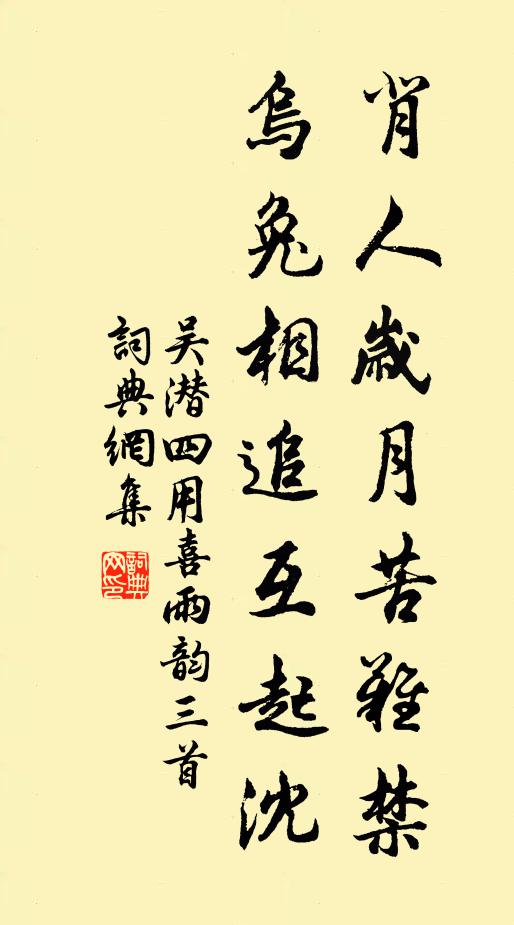 背人歲月苦難禁
烏兔相追互起沈
吴潜四用喜雨韵三首
詞典網集
詞典
网印